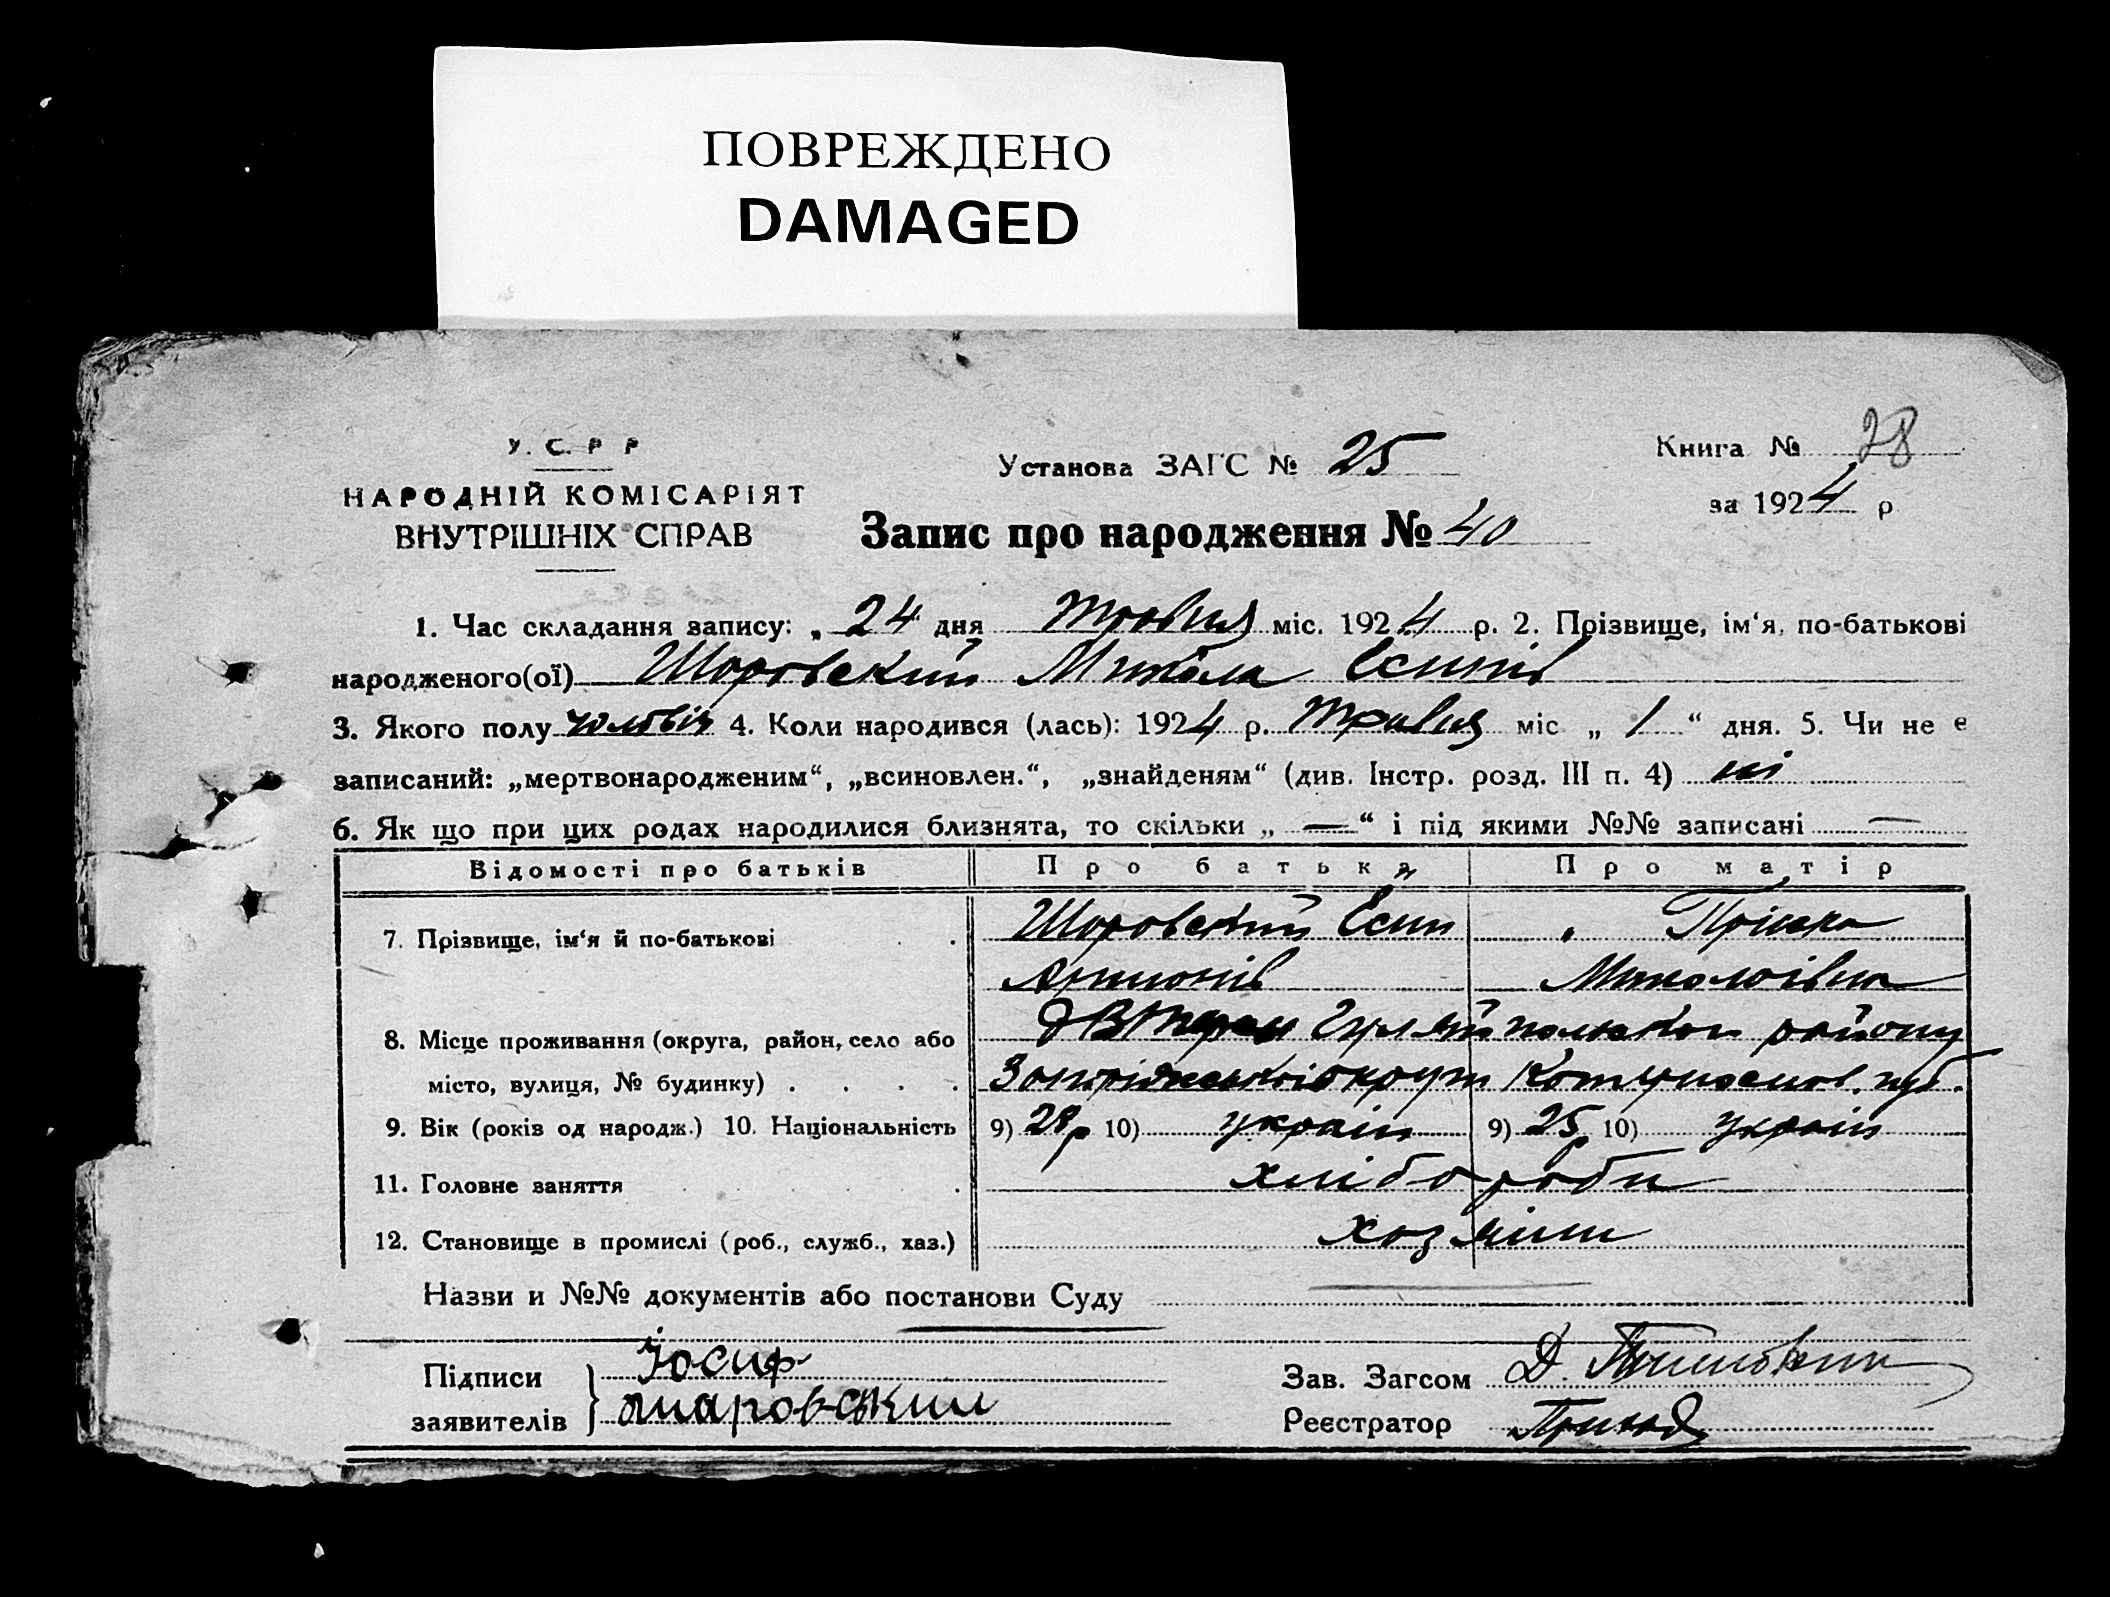 ПОВРЕЖДЕНО
DAMAGED
У. С. Р Р
НАРОДНІЙ КОМІСАРІЯТ
ВНУТРІШНІХ СПРАВ
Установа ЗАГС № 25
Книга № 28
за 1924 р
Запис про народження № 40
1. Час складання запису: „ 24 дня травня міс. 1924 р. 2. Прізвище, ім‘я, по-батькові
народженого(ої) Шаровский Микола Єсипів
3. Якого полу чоловіч 4. Коли народився (лась): 1924 р. травня міс „ 1 “ дня. 5. Чи не є
записаний: „мертвонародженим“, „всиновлен.“, „знайденям“ (див. Інстр. розд. III п. 4) ні
6. Як що при цих родах народилися близнята, то скільки „ — “ і під якими №№ записані —
Відомості про батьків Про батька Про матір
7. Прізвище, ім‘я й по-батькові Шаровский Єсип „
Миколоівна
8. Місце проживання (округа, район, село або Гуляйпольскои району
місто, вулиця, № будинку) . . . . Запоріжськоі округи Катеринослав. губ.
9. Вік (років од народж.) 10. Національність 9) 28 р 10) україн 9) 25 р 10) україн
11. Головне заняття хлібороби
12. Становище в промислі (роб., служб., хаз.) хозяіни
Назви и №№ документів або постанови Суду
Підписи Йосиф
заявителів } Шаровський
Зав. Загсом Д.
Реєстратор